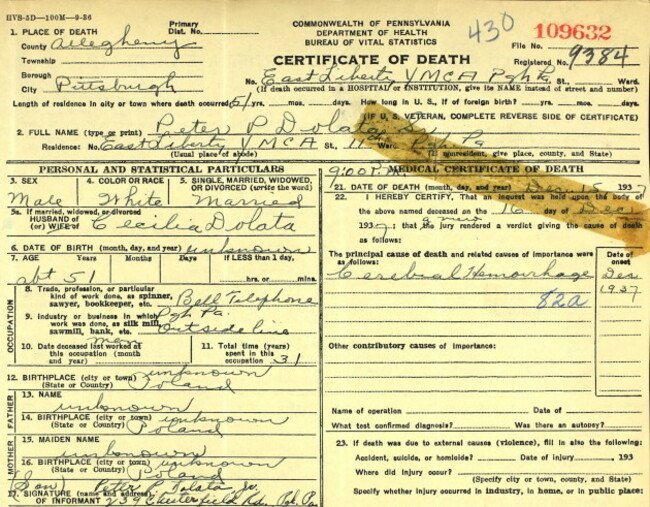 HVS-5D—100M—9-36
COMMONWEALTH OF PENNSYLVANIA
DEPARTMENT OF HEALTH
BUREAU OF VITAL STATISTICS
CERTIFICATE OF DEATH
430
109632
File No.
Registered No. 9384
1. PLACE OF DEATH
Primary Dist. No.
County Allegheny
Township
Borough
City Pittsburgh
No. East Liberty YMCA Pgh Pa St., Ward.
(If death occurred in a HOSPITAL or INSTITUTION, give its NAME instead of street and number)
Length of residence in city or town where death occurred 51 yrs. mos. days. How long in U. S., if of foreign birth? yrs. mos. days.
(IF U. S. VETERAN, COMPLETE REVERSE SIDE OF CERTIFICATE)
2. FULL NAME (type or print) Peter P Dolata Sr.
Residence: No. East Liberty YMCA St., 11 Ward. Pgh Pa
(Usual place of abode) (If nonresident, give place, county, and State)
PERSONAL AND STATISTICAL PARTICULARS
3. SEX Male
4. COLOR OR RACE White
5. SINGLE, MARRIED, WIDOWED, OR DIVORCED (write the word) Married
5a. If married, widowed, or divorced
HUSBAND of
(or) WIFE of Cecilia Dolata
6. DATE OF BIRTH (month, day, and year) unknown
7. AGE Years Months Days If LESS than 1 day,
abt 51 hrs. or mins.
OCCUPATION
8. Trade, profession, or particular kind of work done, as spinner, sawyer, bookkeeper, etc. Bell Telephone
9. Industry or business in which work was done, as silk mill, sawmill, bank, etc. Pgh Pa. outside line
man
10. Date deceased last worked at this occupation (month and year)
11. Total time (years) spent in this occupation 31
12. BIRTHPLACE (city or town) unknown
(State or Country) Poland
FATHER
13. NAME unknown
14. BIRTHPLACE (city or town) unknown
(State or Country) Poland
MOTHER
15. MAIDEN NAME unknown
16. BIRTHPLACE (city or town) unknown
(State or Country) Poland
(Son) Peter P Dolata Jr.
17. SIGNATURE (name and address)
OF INFORMANT 239 Chesterfield Rd. Pgh Pa
9:00 P.M. MEDICAL CERTIFICATE OF DEATH
21. DATE OF DEATH (month, day, and year) Dec 15 1937
22. I HEREBY CERTIFY, That an inquest was held upon the body
of the above named deceased on the 16 day of Dec.
1937; that the jury rendered a verdict giving the cause of death
as follows:
The principal cause of death and related causes of importance were as follows:
Date of onset
Cerebral Hemorrhage Dec
1937.
82a
Other contributory causes of importance:
Name of operation Date of
What test confirmed diagnosis? Was there an autopsy?
23. If death was due to external causes (violence), fill in also the following:
Accident, suicide, or homicide? Date of injury , 193
Where did injury occur?
(Specify city or town, county, and State)
Specify whether injury occurred in industry, in home, or in public place: